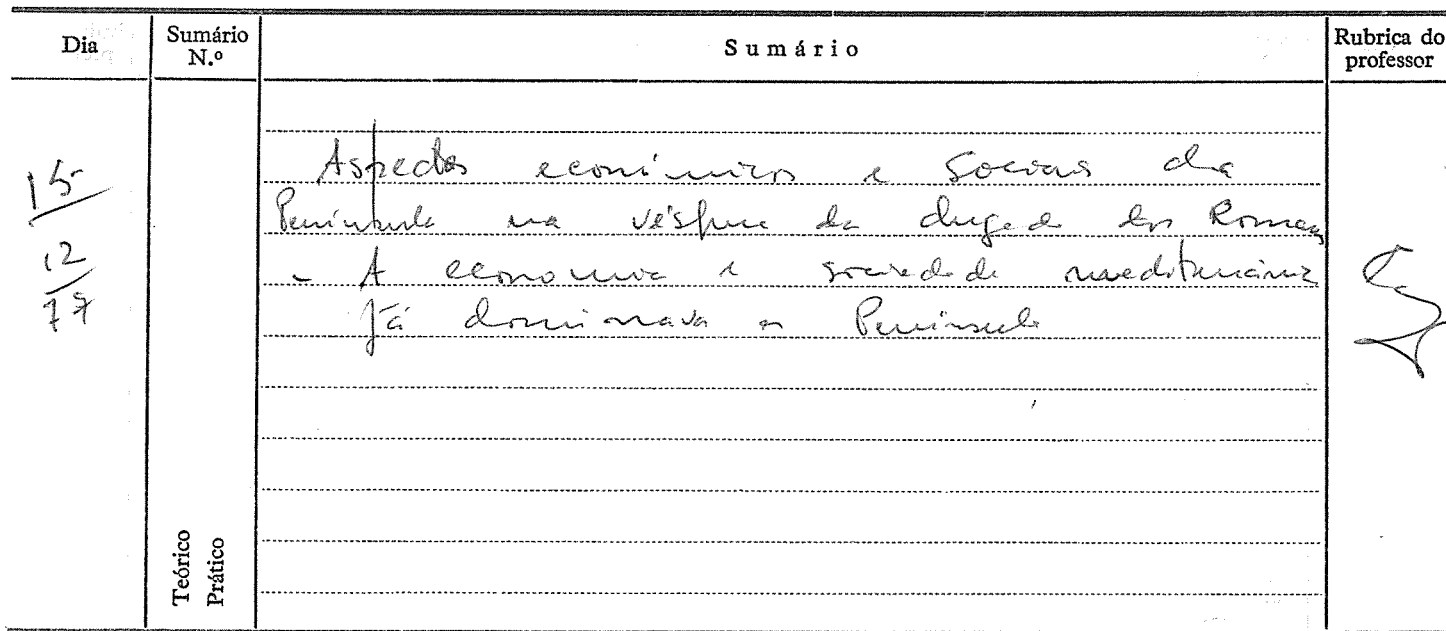 Dia
Sumário N.º
Sumário
Rubrica do professor
15
12
77
Aspectos económicos e Sociais da
Península na véspera da chegada dos Romanos
- A economia e sociedade mediterrânica
já dominava a Península
Teórico
Prático